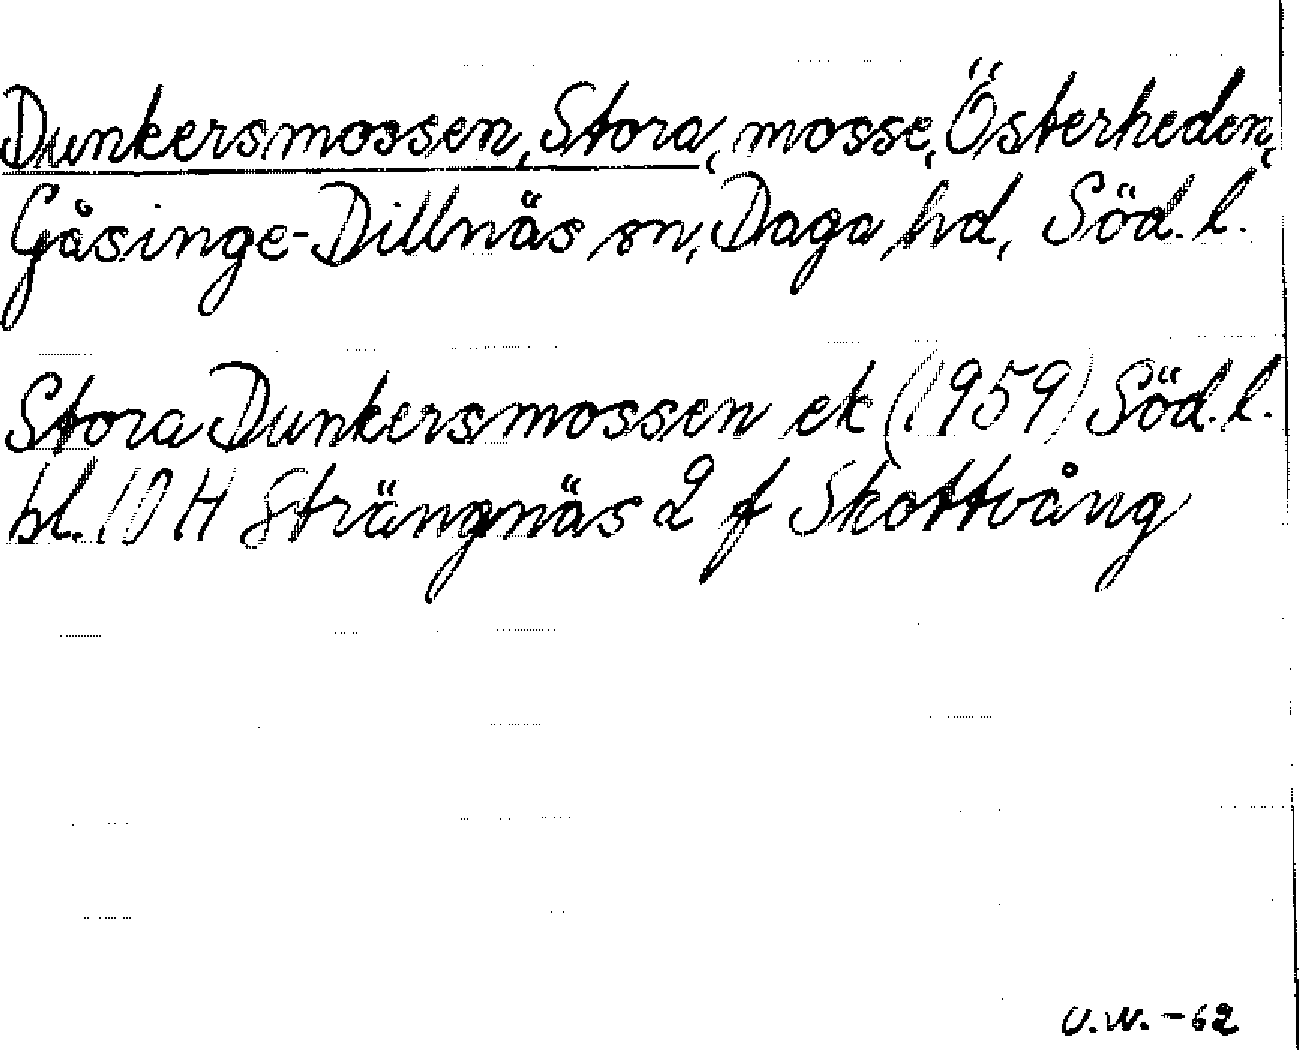 Dunkersmossen, Stora, mosse, Österheden,
Gåsinge-Dillnäs sn, Daga hd, Söd. l.
Stora Dunkersmossen ek (1959) Söd. l.
bl. 10 H Strängnäs 2 f Skottvång
U.W. - 62